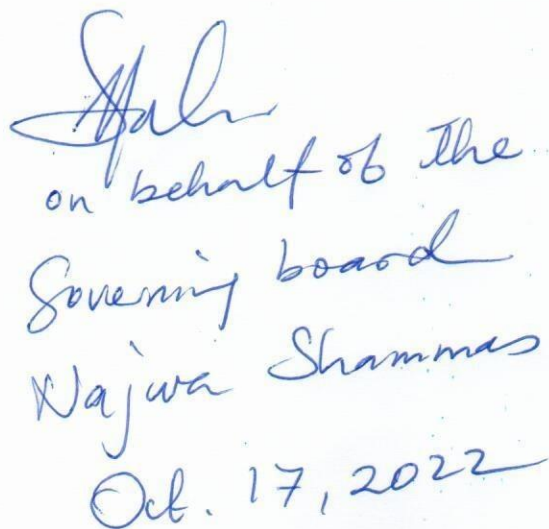 on behalf of the
Governing board
Najwa Shammas
Oct. 17, 2022